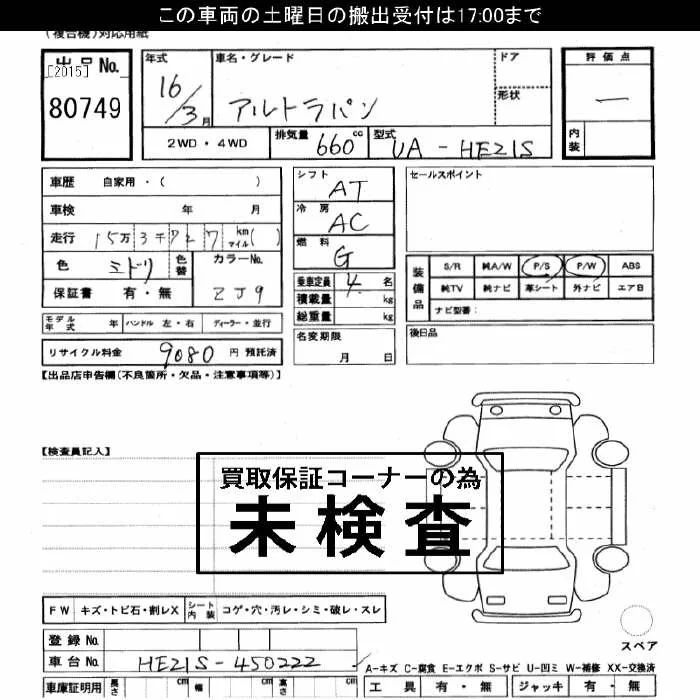 この車両の土曜日の搬出受付は17:00まで
(複合機)対応用紙
出品No.
[2015]
80749
年式
16/3月
車名・グレード
アルトラパン
ドア
形状
評価点
—
内装
2WD・4WD
排気量 660 cc
型式 UA-HE21S
車歴 自家用・( )
車検 年 月
走行 15万3千727 km マイル( )
色 ミドリ
色替
カラーNo.
ZJ9
保証書 有・無
シフト
AT
冷房
AC
燃料
G
乗車定員 4 名
積載量 kg
総重量 kg
セールスポイント
装備品
S/R 純A/W P/S P/W ABS
純TV 純ナビ 革シート 外ナビ エアB
ナビ型番:
モデル年式 年 ハンドル 左・右 ディーラー・並行
リサイクル料金 9080 円 預託済
名変期限
月 日
後日品
【出品店申告欄(不良箇所・欠品・注意事項等)】
【検査員記入】
買取保証コーナーの為
未検査
FW キズ・トビ石・割レX
シート内装 コゲ・穴・汚レ・シミ・破レ・スレ
スペア
登録No.
車台No. HE21S-450222
A-キズ C-腐食 E-エクボ S-サビ U-凹ミ W-補修 XX-交換済
車庫証明用 長さ cm 幅 cm 高さ cm
工具 有・無 ジャッキ 有・無